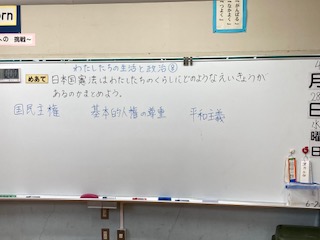 orn
への 挑戦～
がんばる
なかよく
つよく
わたしたちの生活と政治⑧
めあて 日本国憲法はわたしたちのくらしにどのようなえいきょうが
あるのかまとめよう。
国民主権 基本的人権の尊重 平和主義
月
28
日
曜
日
6-2